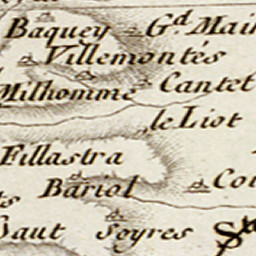 Baquey
G.d Main
Villemontés
Milhomme
Cantet
le Liot
Fillastra
Bariol
Haut
Soyres